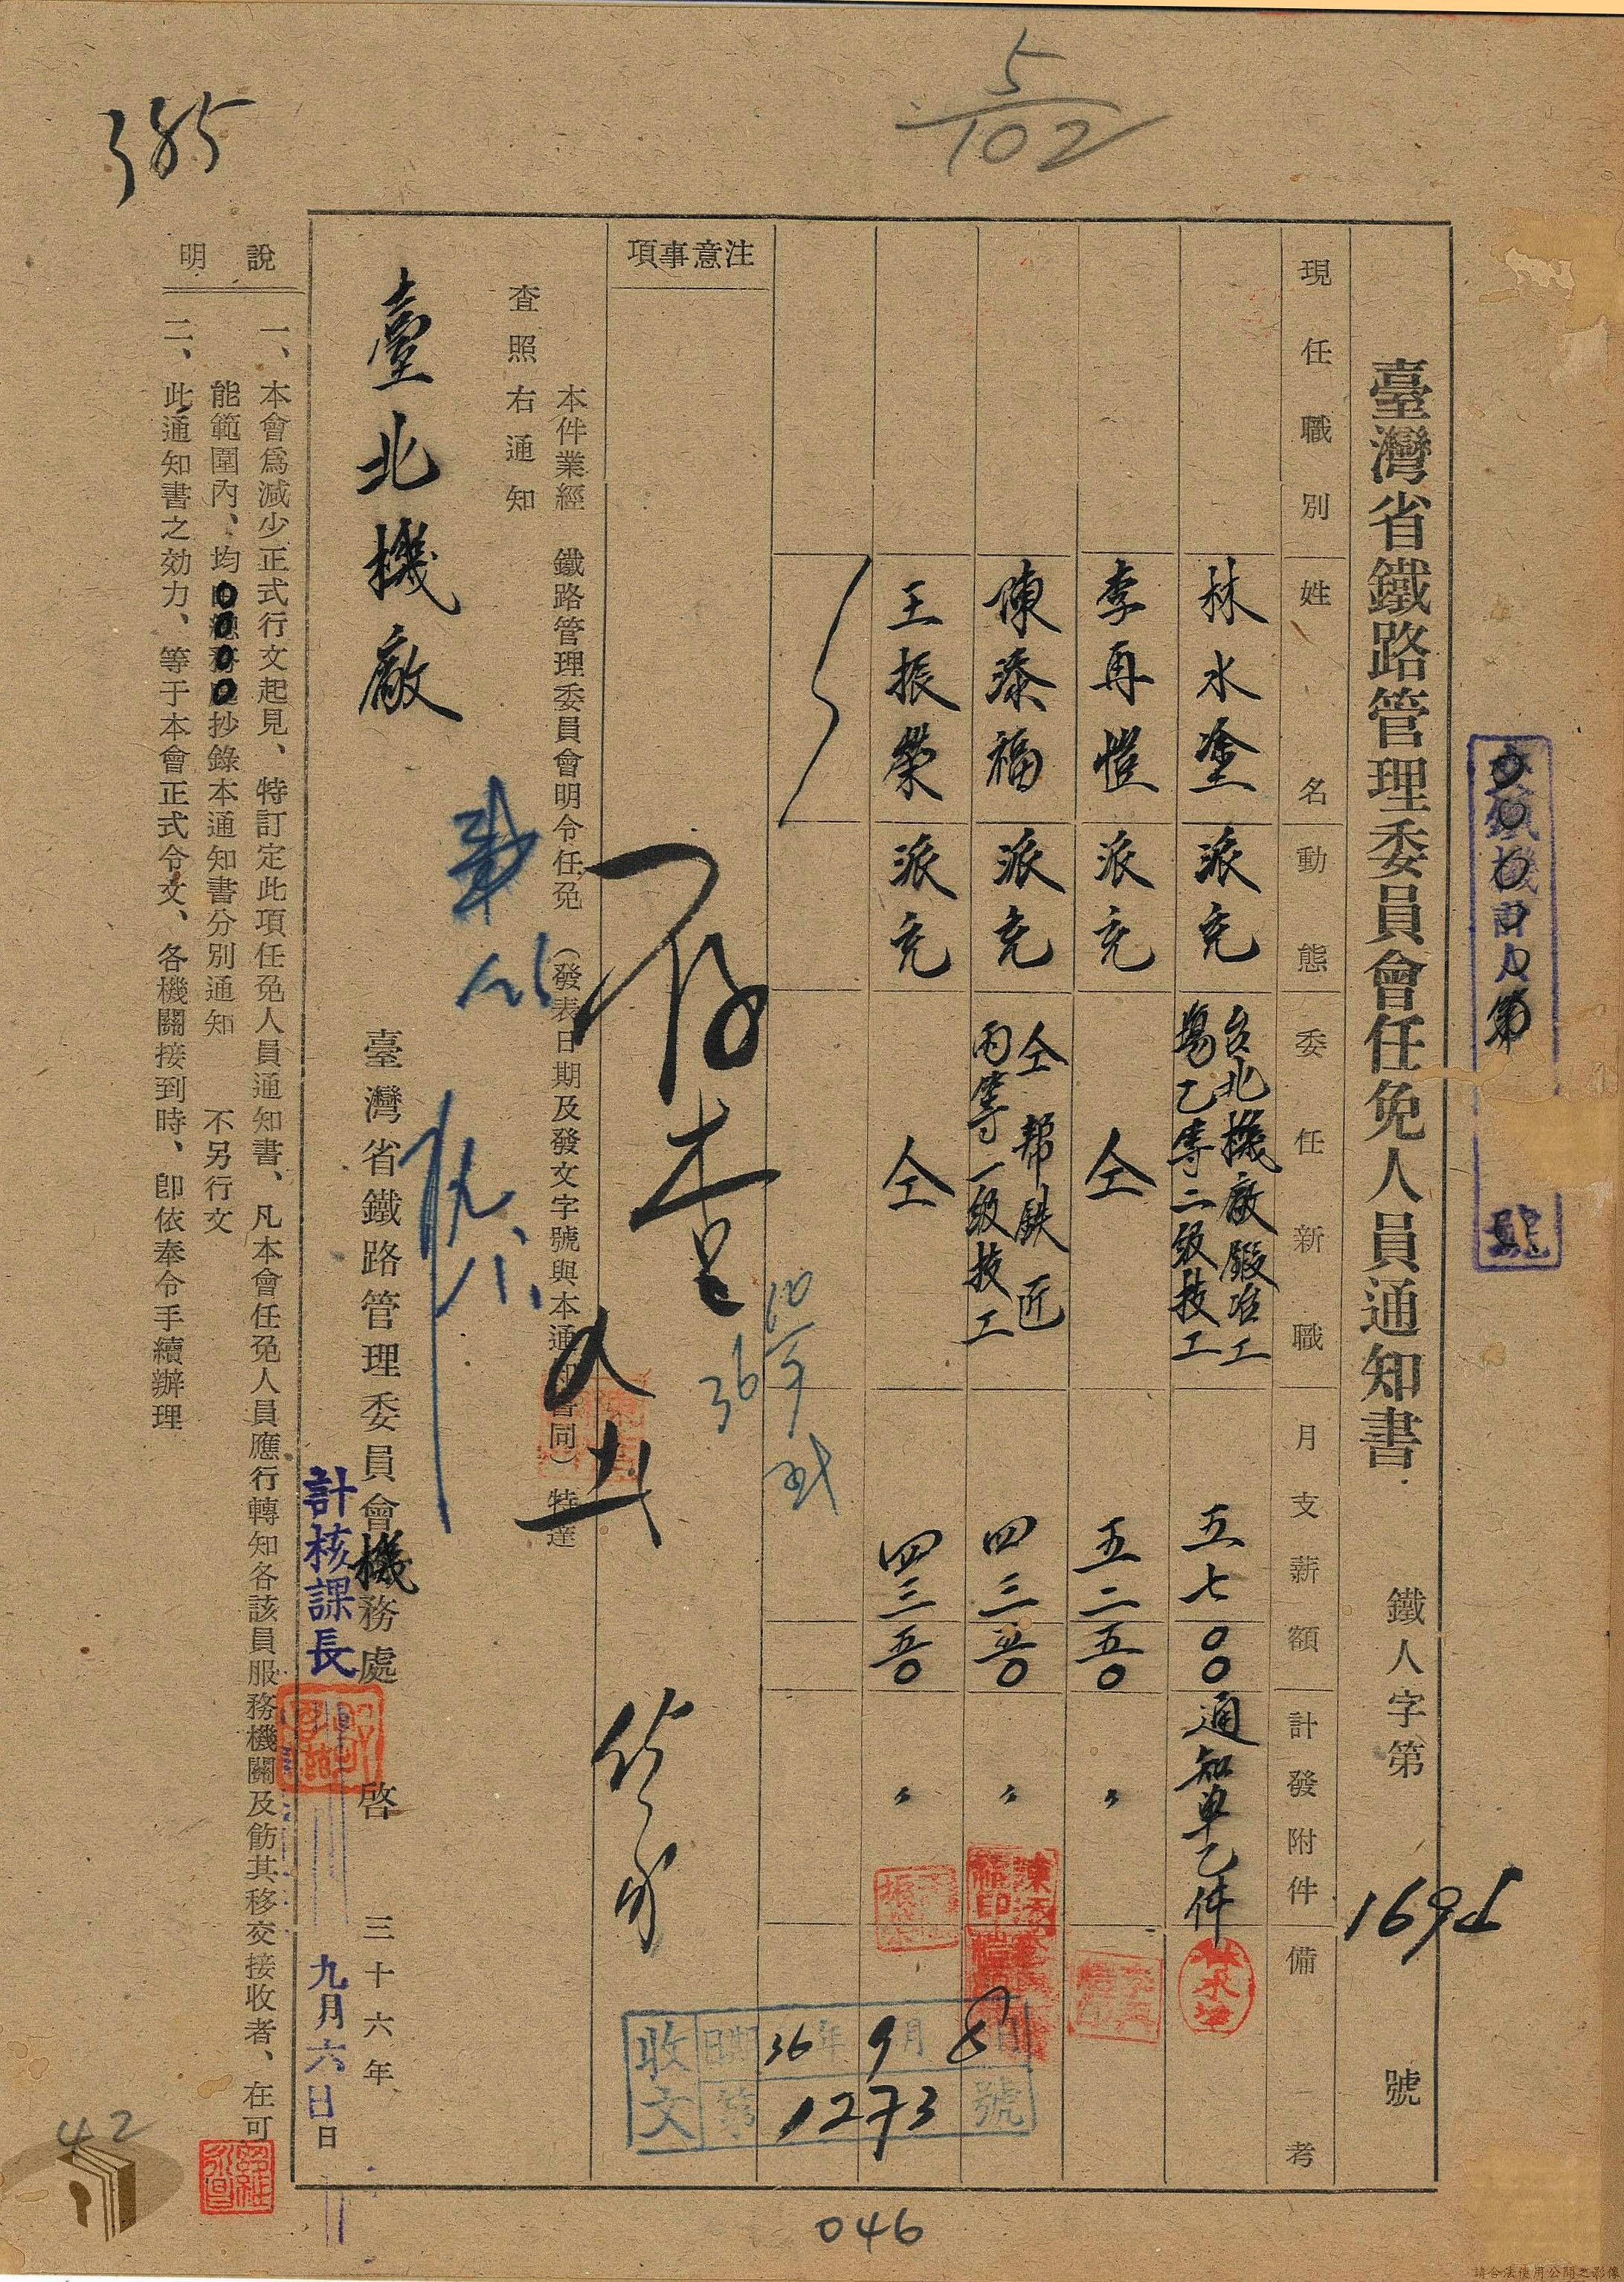 385
5/102
臺灣省鐵路管理委員會任免人員通知書
鐵人字第
號
現任職別
姓名
動態
委任新職
月支薪額
計發附件
備考
林水塗
派充
台北機廠鍛冶工
場乙等二級技工
五七〇〇
通知單乙件
李再愷
派充
仝
五二五〇
〃
陳添福
派充
仝 幫鉄匠
丙等一級技工
四三五〇
〃
王振榮
派充
仝
四三五〇
〃
注意事項
存查
本件業經 鐵路管理委員會明令任免 (發表日期及發文字號與本通知書同) 特達
查照右通知
臺北機廠
臺灣省鐵路管理委員會機務處 啓 三十六年
計核課長
九月六日
日
收文
日期 36年9月8日
第1273號
說明
一、本會爲減少正式行文起見、特訂定此項任免人員通知書、凡本會任免人員應行轉知各該員服務機關及飭其移交接收者、在可
能範圍內、均 抄錄本通知書分別通知 不另行文
二、此通知書之効力、等于本會正式令文、各機關接到時、卽依奉令手續辦理
42
046
請合法使用公開之影像